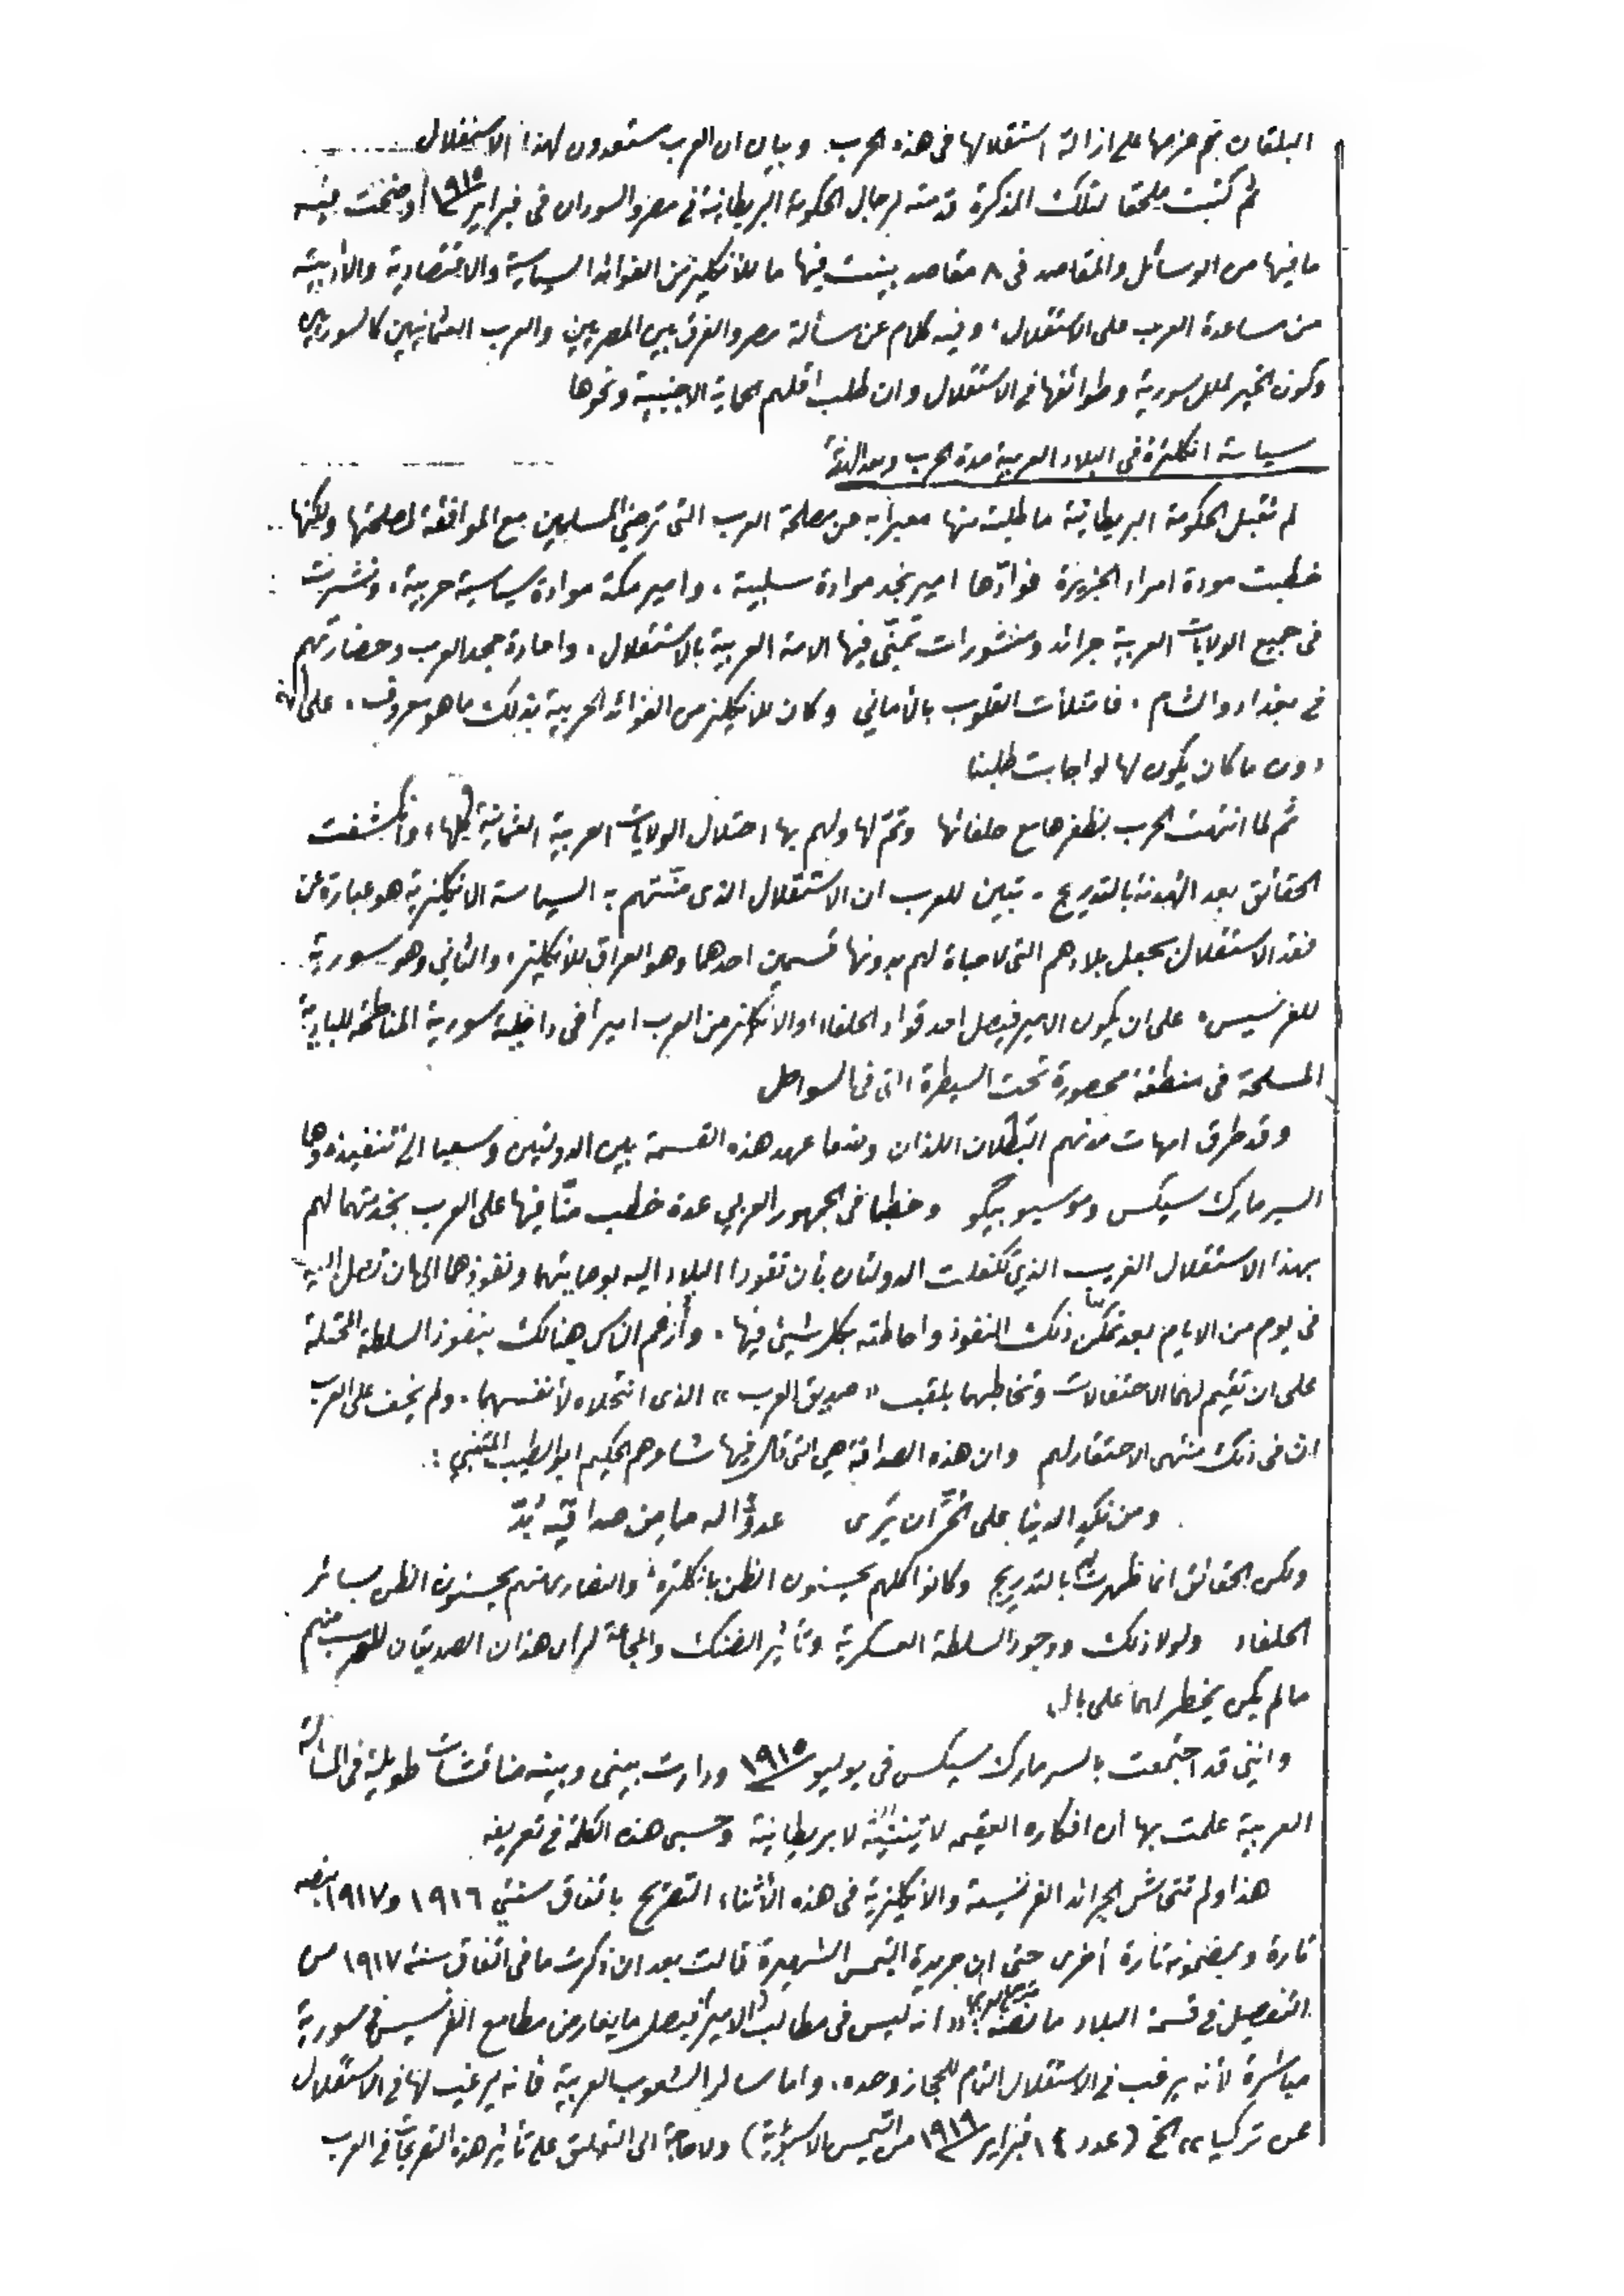 البلقان ثم عزمها على ازالة استقلالها فى هذه الحرب. وبيان ان العرب مستعدون لهذا الاستقلال
ثم كتبت ملحقا لتلك المذكرة قدمته لرجال الحكومة البريطانية في مصر والسودان فى فبراير ١٩١٥ أوضحت فيه
ما فيها من الوسائل والمقاصد فى ٨ مقاصد بينت فيها ما للانكليز من الفوائد السياسية والاقتصادية والأدبية
من مساعدة العرب على الاستقلال، وفيه كلام عن مسألة مصر والفرق بين المصريين والعرب العثمانيين كالسوريين
وكون الخير لملل سورية وطوائفها في الاستقلال وان طلب اقلهم الحماية الاجنبية ونحوها
سياسة انكلترة فى البلاد العربية مدة الحرب وبعد الهدنة
لم تقبل الحكومة البريطانية ما طلبته منها معبرا به عن مصلحة العرب التى ترضي المسلمين مع الموافقة لمصلحتها ولكنها
خطبت مودة امراء الجزيرة فوادّها امير نجد موادة سلبية، وامير مكة موادة سياسية حربية، ونشرت
فى جميع الولايات العربية جرائد ومنشورات تمنّى فيها الامة العربية بالاستقلال، واعادة مجد العرب وحضارتهم
في بغداد والشام، فامتلأت القلوب بالأماني وكان للانكليز من الفوائد الحربية بذلك ما هو معروف، على انه
دون ما كان يكون لها لو اجابت طلبنا
ثم لما انتهت الحرب بظفرها مع حلفائها وتمّ لها ولهم بها احتلال الولايات العربية العثمانية كلها، وانكشفت
الحقائق بعد الهدنة بالتدريج - تبين للعرب ان الاستقلال الذى منّتهم به السياسة الانكليزية هو عبارة عن
فقد الاستقلال بجعل بلادهم التى لا حياة لهم بدونها قسمين احدهما وهو العراق للانكليز، والثاني وهو سورية
للفرنسيس، على ان يكون الامير فيصل احد قواد الحلفاء او الانكليز من العرب اميرا فى داخلية سورية المناطحة للبادية
المسلحة فى منطقة محصورة تحت السيطرة التى فى السواحل
وقد طرق امهات مدنهم البطلان اللذان وضعا عهد هذه القسمة بين الدولتين وسعيا الى تنفيذه وهما
السير مارك سيكس وموسيو بيكو وخطبا فى الجمهور العربي عدة خطب منّا فيها على العرب بخدمتهما لهم
بهذا الاستقلال الغريب الذي تكفلت الدولتان بأن تقودا البلاد اليه بوصايتهما ونفوذهما الى ان تصل اليه
فى يوم من الايام بعد تمكّن ذلك النفوذ واحاطته بكل شيئ فيها. وأرغم الناس هنالك بنفوذ السلطة المحتلة
على ان تقيم لهما الاحتفالات وتخاطبهما بلقب «صديق العرب» الذى انتحلاه لأنفسهما. ولم يخف على العرب
ان فى ذلك منتهى الاحتقار لهم وان هذه الصداقة هي التى قال فيها شاعرهم الحكيم ابو الطيب المتنبي:
ومن نكدِ الدنيا على الحُرّ ان يَرى عدوًّا له ما مِن صداقتِه بُدُّ
ولكن الحقائق انما ظهرت لهم بالتدريج وكانوا كلهم يحسنون الظن بانكلترة، والنصارى منهم يحسنون الظن بسائر
الحلفاء ولولا ذلك ووجود السلطة العسكرية وتأثير الضنك والمجاعة لرأى هذان الصديقان للعرب منهم
ما لم يكن يخطر لهما على بال.
وانني قد اجتمعت بالسر مارك سيكس فى يوليو ١٩١٥ ودارت بيني وبينه مناقشات طويلة فى المسألة
العربية علمت بها ان افكاره العقيمة لاتينية لا بريطانية وحسبى هذه الكلمة في تعريفه
هذا ولم تتحاش الجرائد الفرنسية والانكليزية فى هذه الأثناء التصريح باتفاق سنتي ١٩١٦ و ١٩١٧ بنصه
تارة وبمضمونه تارة أخرى حتى ان جريدة التيمس الشهيرة قالت بعد ان ذكرت ما فى اتفاق سنة ١٩١٧ من
التفصيل في قسمة البلاد ما نصه «انه ليس فى مطالب الامير فيصل ما يعارض مطامع الفرنسيس في سورية
مباشرة لأنه يرغب في الاستقلال التام للحجاز وحده، واما سائر الشعوب العربية فانه يرغب لها في الاستقلال
عن تركيا» الخ (عدد ١٤ فبراير ١٩١٩ من التيمس الاسبوعية) ولا حاجة الى التعليق على تأثير هذه التصريحات في العرب